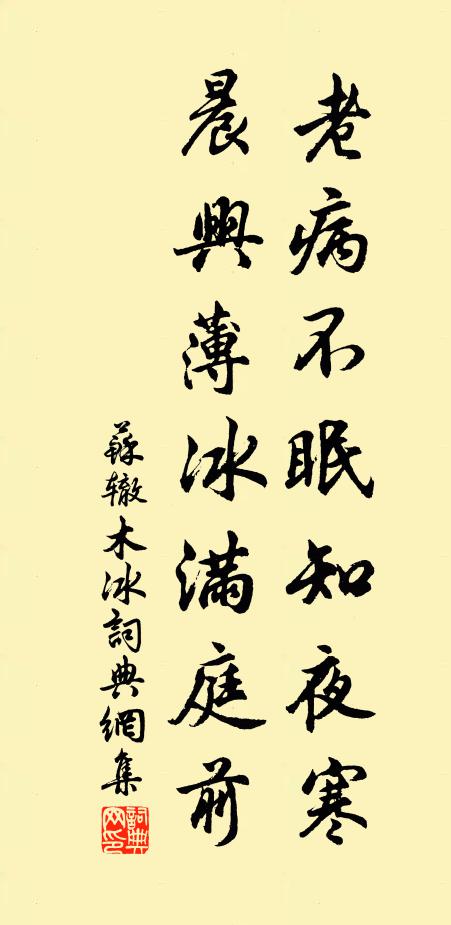 老病不眠知夜寒
晨興薄冰滿庭前
蘇轍木冰詞典網集
詞典网印